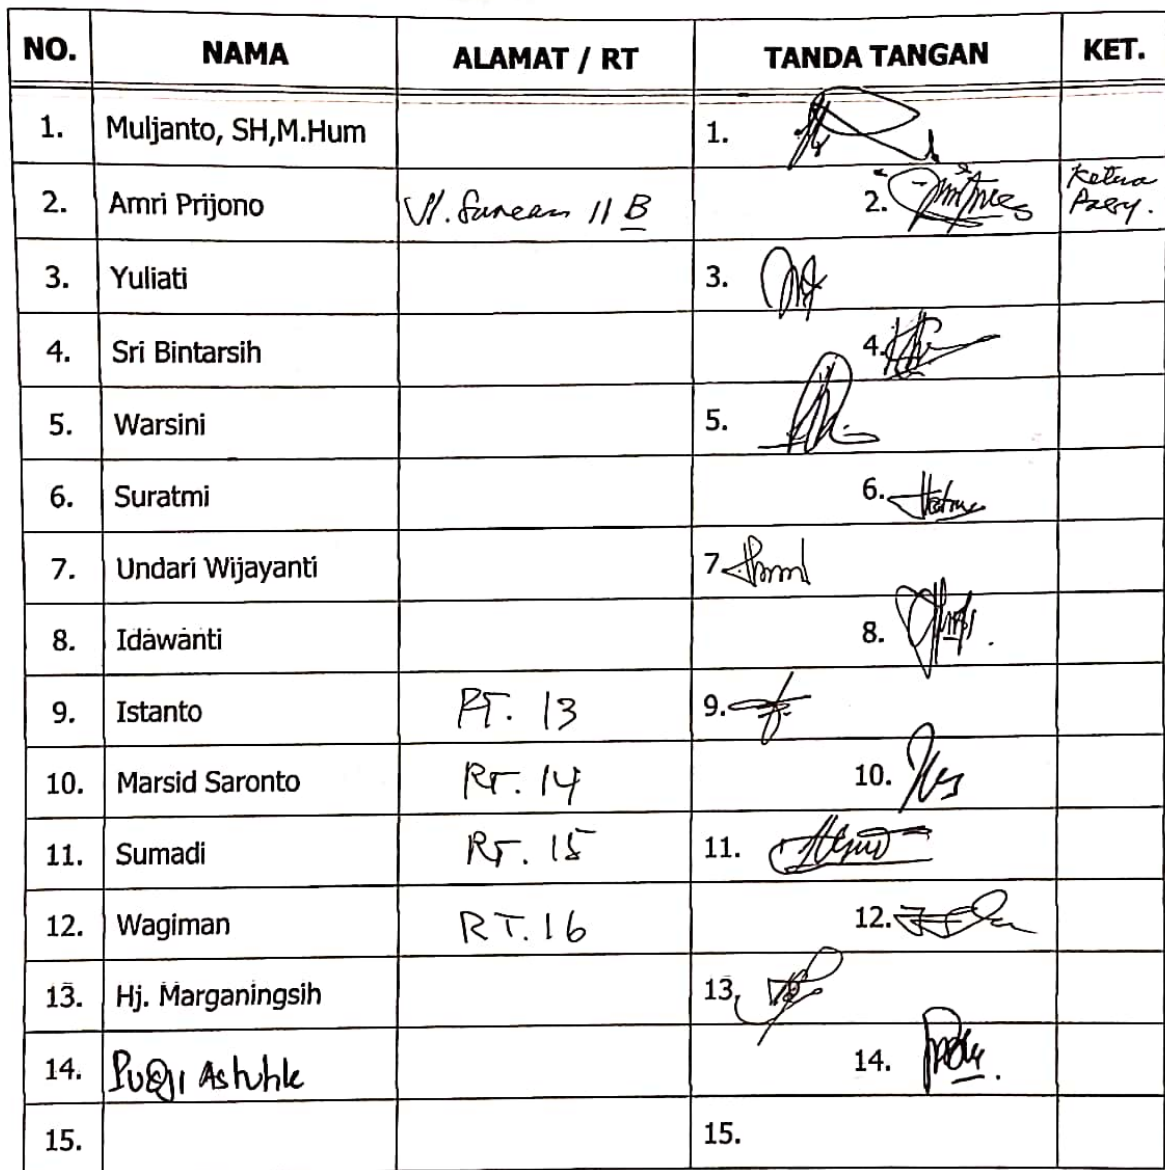 NO. NAMA ALAMAT / RT TANDA TANGAN KET.
1. Muljanto, SH,M.Hum 1.
2. Amri Prijono Jl. 11 B 2. Ketua
3. Yuliati 3.
4. Sri Bintarsih 4.
5. Warsini 5.
6. Suratmi 6.
7. Undari Wijayanti 7.
8. Idawanti 8.
9. Istanto RT. 13 9.
10. Marsid Saronto RT. 14 10.
11. Sumadi RT. 15 11.
12. Wagiman RT. 16 12.
13. Hj. Marganingsih 13.
14. 14.
15. 15.